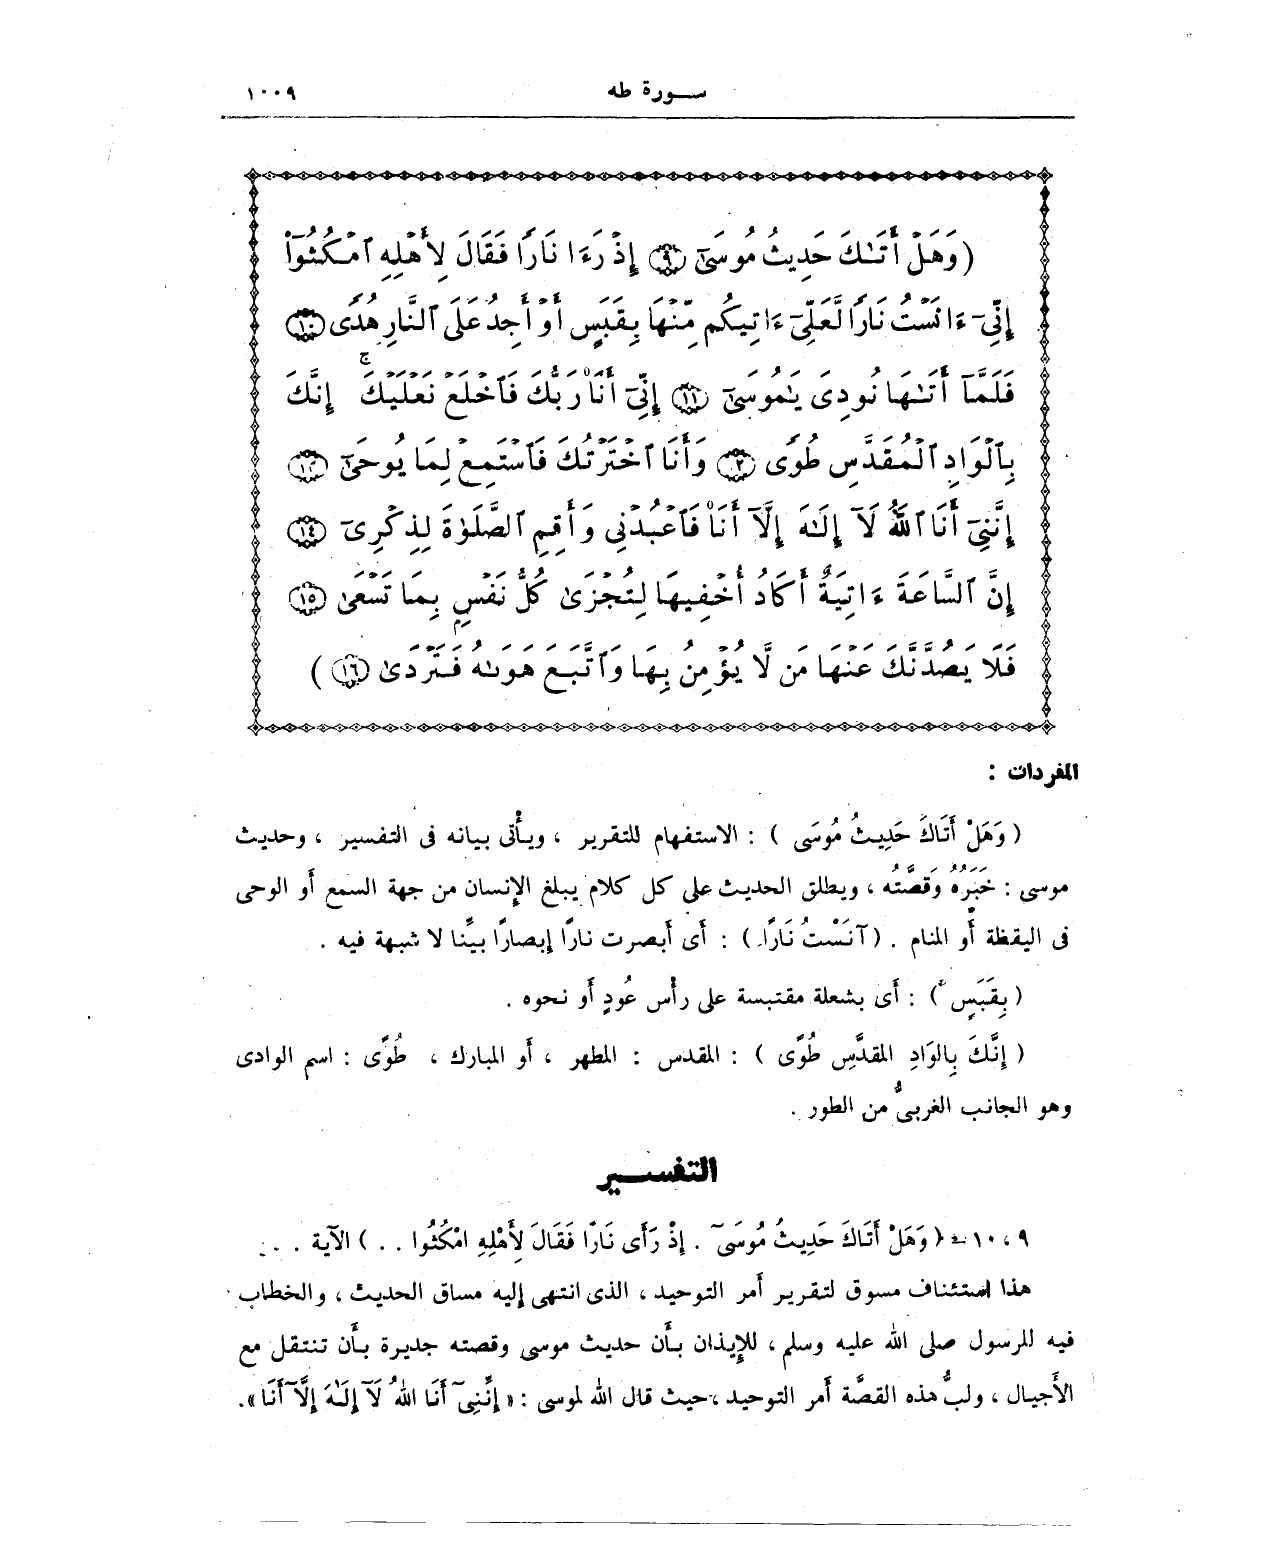 سورة طه
١٠٠٩
(وَهَلْ أَتَىٰكَ حَدِيثُ مُوسَىٰٓ ۝٩ إِذْ رَءَا نَارًا فَقَالَ لِأَهْلِهِ ٱمْكُثُوٓا۟
إِنِّىٓ ءَانَسْتُ نَارًا لَّعَلِّىٓ ءَاتِيكُم مِّنْهَا بِقَبَسٍ أَوْ أَجِدُ عَلَى ٱلنَّارِ هُدًى ۝١٠
فَلَمَّآ أَتَىٰهَا نُودِىَ يَٰمُوسَىٰٓ ۝١١ إِنِّىٓ أَنَا۠ رَبُّكَ فَٱخْلَعْ نَعْلَيْكَ ۚ إِنَّكَ
بِٱلْوَادِ ٱلْمُقَدَّسِ طُوًى ۝١٢ وَأَنَا ٱخْتَرْتُكَ فَٱسْتَمِعْ لِمَا يُوحَىٰٓ ۝١٣
إِنَّنِىٓ أَنَا ٱللَّهُ لَآ إِلَٰهَ إِلَّآ أَنَا۠ فَٱعْبُدْنِى وَأَقِمِ ٱلصَّلَوٰةَ لِذِكْرِىٓ ۝١٤
إِنَّ ٱلسَّاعَةَ ءَاتِيَةٌ أَكَادُ أُخْفِيهَا لِتُجْزَىٰ كُلُّ نَفْسٍۭ بِمَا تَسْعَىٰ ۝١٥
فَلَا يَصُدَّنَّكَ عَنْهَا مَن لَّا يُؤْمِنُ بِهَا وَٱتَّبَعَ هَوَىٰهُ فَتَرْدَىٰ ۝١٦ )
المفردات :
( وَهَلْ أَتَاكَ حَدِيثُ مُوسَى ) : الاستفهام للتقرير ، ويأتى بيانه فى التفسير ، وحديث
موسى : خَبَرُهُ وَقِصَّتُه ، ويطلق الحديث على كل كلام يبلغ الإنسان من جهة السمع أو الوحى
فى اليقظة أو المنام . ( آنَسْتُ نَارًا ) : أى أبصرت نارًا إبصارًا بيِّنا لا شبهة فيه .
( بِقَبَسٍ ) : أى بشعلة مقتبسة على رأس عُودٍ أو نحوه .
( إِنَّكَ بِالوَادِ المقدَّسِ طُوًى ) : المقدس : المطهر ، أو المبارك ، طُوًى : اسم الوادى
وهو الجانب الغربىُّ من الطور .
التفسير
٩ ، ١٠ - ( وَهَلْ أَتَاكَ حَدِيثُ مُوسَىٓ . إِذْ رَأَى نَارًا فَقَالَ لِأَهْلِهِ امْكُثُوا . . ) الآية . . :
هذا استئناف مسوق لتقرير أمر التوحيد ، الذى انتهى إليه مساق الحديث ، والخطاب
فيه للرسول صلى الله عليه وسلم ، للإيذان بأن حديث موسى وقصته جديرة بأن تنتقل مع
الأجيال ، ولبُّ هذه القصَّة أمر التوحيد ، حيث قال الله لموسى : « إِنَّنِىٓ أَنَا اللهُ لَآ إِلَٰهَ إِلَّآ أَنَا ».